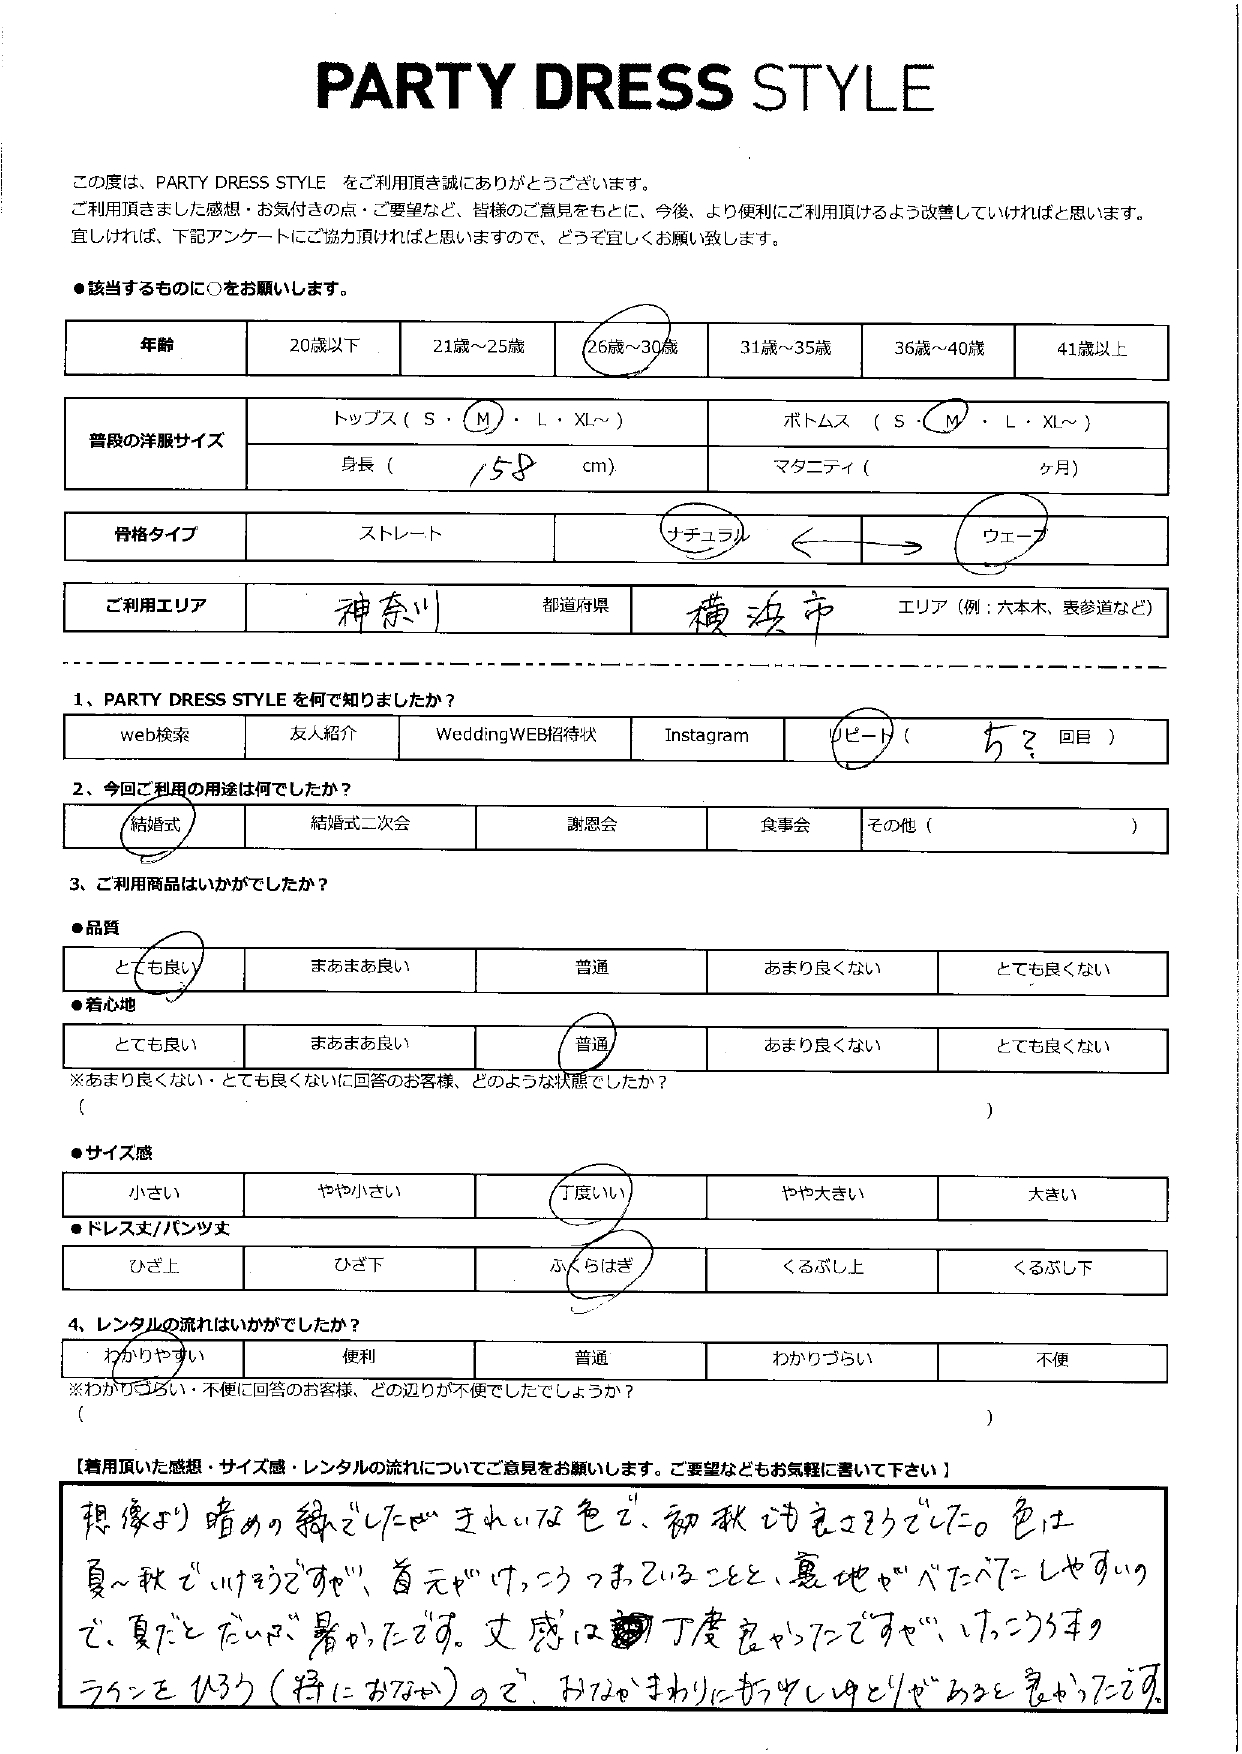 PARTY DRESS STYLE
この度は、PARTY DRESS STYLE をご利用頂き誠にありがとうございます。
ご利用頂きました感想・お気付きの点・ご要望など、皆様のご意見をもとに、今後、より便利にご利用頂けるよう改善していければと思います。
宜しければ、下記アンケートにご協力頂ければと思いますので、どうぞ宜しくお願い致します。
●該当するものに○をお願いします。
年齢 20歳以下 21歳～25歳 26歳～30歳 31歳～35歳 36歳～40歳 41歳以上
普段の洋服サイズ トップス( S ・ M ・ L ・ XL～ ) ボトムス ( S ・ M ・ L ・ XL～ )
身長 ( 158 cm) マタニティ ( ヶ月)
骨格タイプ ストレート ナチュラル ウェーブ
ご利用エリア 神奈川 都道府県 横浜市 エリア（例：六本木、表参道など）
1、PARTY DRESS STYLE を何で知りましたか？
web検索 友人紹介 WeddingWEB招待状 Instagram リピート ( ? 回目 )
2、今回ご利用の用途は何でしたか？
結婚式 結婚式二次会 謝恩会 食事会 その他 ( )
3、ご利用商品はいかがでしたか？
●品質
とても良い まあまあ良い 普通 あまり良くない とても良くない
●着心地
とても良い まあまあ良い 普通 あまり良くない とても良くない
※あまり良くない・とても良くないに回答のお客様、どのような状態でしたか？
( )
●サイズ感
小さい やや小さい 丁度いい やや大きい 大きい
●ドレス丈/パンツ丈
ひざ上 ひざ下 ふくらはぎ くるぶし上 くるぶし下
4、レンタルの流れはいかがでしたか？
わかりやすい 便利 普通 わかりづらい 不便
※わかりづらい・不便に回答のお客様、どの辺りが不便でしたでしょうか？
( )
【着用頂いた感想・サイズ感・レンタルの流れについてご意見をお願いします。ご要望などもお気軽に書いて下さい】
想像より暗めの緑でしたがきれいな色で、初秋でも良さそうでした。色は
夏～秋でいけそうですが、首元がけっこうつまっていることと、裏地がべたべたしやすいの
で、夏だとだいぶ暑かったです。丈感は丁度良かったですが、けっこう体の
ラインをひろう（特におなか）ので、おなかまわりにもう少しゆとりがあると良かったです。